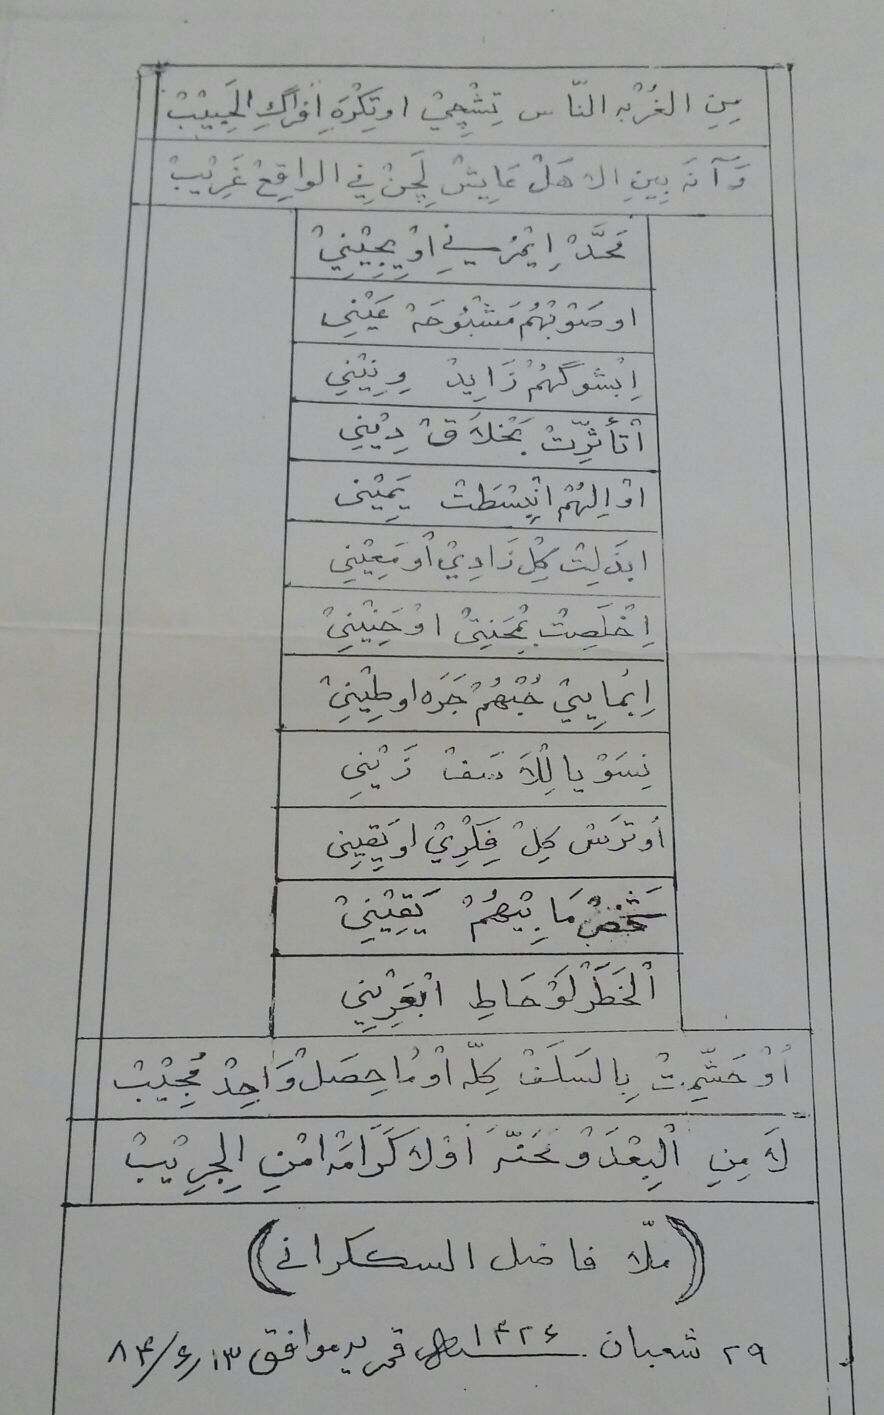 مِنِ الغُرْبَه النّاس تِشْچِيْ اوتِكْرَهِ افراگِ الحَبِيْبْ
وَآنَه بِينِ الاهَلْ عَايِشْ لٰچِنْ فِي الواقِعْ غَرِيْبْ
مَحَّدْ اِيْمُرْنِي اوْيِجِيْنِيْ
اوصَوْبْهُمْ مَشْبُوحَهْ عَيْنِي
اِبْشَوگْهُمْ زَايِدْ وِنِيْنِي
اتْأَثِّرِتْ بَخْلاَقْ دِيْنِي
اوْاِلهُمْ انْبِسْطَتْ يَمِيْنِي
ابذَلِتْ كِلْ زَادِيْ أومَعِيْنِي
اِخْلَصِتْ بِمْحَنِتِيْ اوْحَنِيْنِيْ
اِبْمَايِيْ حُبْهُمْ جَرَه اوطِيْنِيْ
نِسَوْ يا لِلاَسَفْ زَيْنِي
أوْتَرَسْ كِلْ فِكِرْيْ اويَقِيْنِي
شَخْصْ مَابِيْهُمْ يَقِيْنِيْ
الْخَطَرْ لَوْحَاطِ ابْقَرِيْنِي
أوْحَشَّمِتْ بِالسَلَفْ كِلَّه أوْمَاحِصَلْ وَاحِدْ مُجِيْبْ
لاَ مِنِ الْبِعْدَوْ نَحَنَّه أوْلاَكَرَامَهْ امْنِ الجِرِيْبْ
(ملّا فاضل السكراني)
۲۹ شعبان ۱۴۲۶ قمريه موافق ۸۴/۶/۱۳